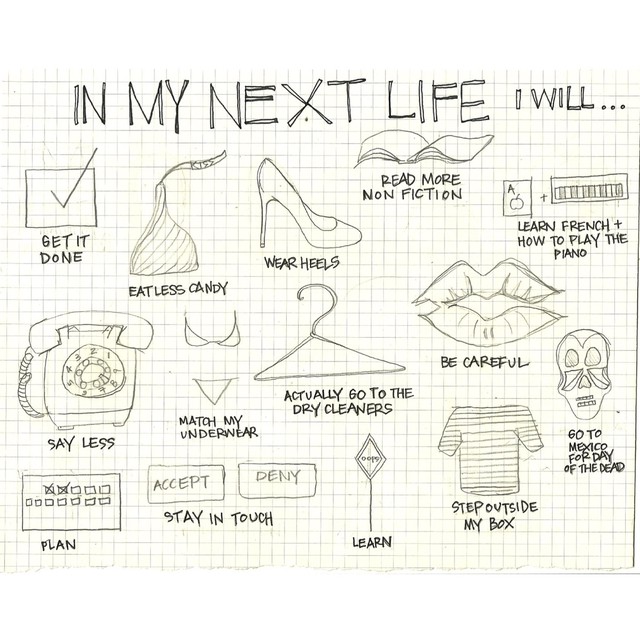 IN MY NEXT LIFE I WILL...
GET IT
DONE
KISS
EAT LESS CANDY
WEAR HEELS
READ MORE
NON FICTION
A
+
LEARN FRENCH +
HOW TO PLAY THE
PIANO
SAY LESS
MATCH MY
UNDERWEAR
ACTUALLY GO TO THE
DRY CLEANERS
BE CAREFUL
GO TO
MEXICO
FOR DAY
OF THE DEAD
PLAN
ACCEPT
DENY
STAY IN TOUCH
OOPS
LEARN
STEP OUTSIDE
MY BOX